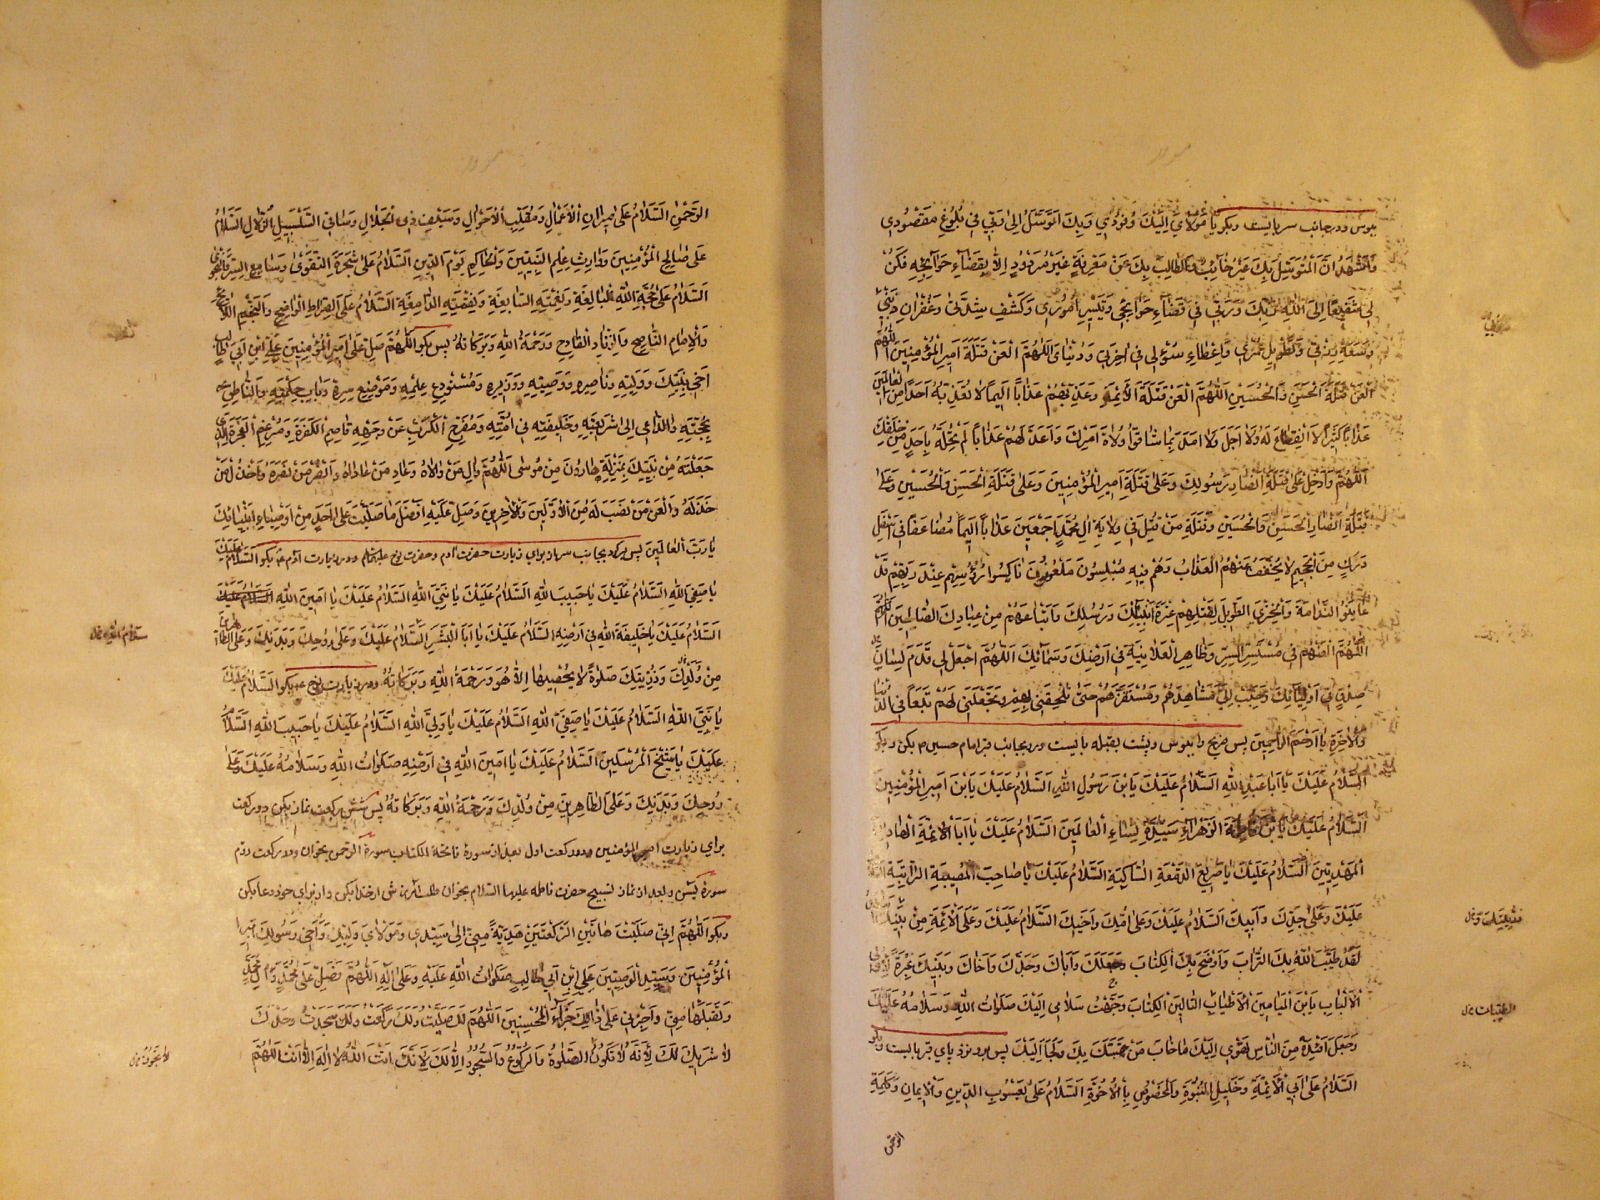 ببوس ودر جانب سر بايست وبكو يا مَوْلايَ اِلَيْكَ وُفُودي وَبِكَ اَتَوَسَّلُ اِلى رَبّي في بُلُوغِ مَقْصُودي
وَاَشْهَدُ اَنَّ الْمُتَوَسِّلَ بِكَ غَيْرُ خائِبٍ وَالطّالِبَ بِكَ عَنْ مَعْرِفَةٍ غَيْرُ مَرْدُودٍ اِلّا بِقَضاءِ حَوائِجِهِ فَكُنْ
لي شَفيعًا اِلَى اللهِ رَبِّكَ وَرَبّي في قَضاءِ حَوائِجي وَتَيْسيرِ اُمُوري وَكَشْفِ شِدَّتي وَغُفْرانِ ذَنْبي
وَسَعَةِ رِزْقي وَتَطْويلِ عُمْري وَاِعْطاءِ سُؤْلي في اخِرَتي وَدُنْيايَ اَللّهُمَّ الْعَنْ قَتَلَةَ اَميرِ الْمُؤْمِنينَ اَللّهُمَّ
الْعَنْ قَتَلَةَ الْحَسَنِ وَالْحُسَيْنِ اَللّهُمَّ الْعَنْ قَتَلَةَ الْاَئِمَّةِ وَعَذِّبْهُمْ عَذابًا اَليمًا لا تُعَذِّبُهُ اَحَدًا مِنَ الْعالَمينَ
عَذابًا كَثيرًا لَا انْقِطاعَ لَهُ وَلا اَجَلَ وَلا اَمَدَ بِما شاقُّوا وُلاةَ اَمْرِكَ وَاَعِدَّ لَهُمْ عَذابًا لَمْ تُحِلَّهُ بِاَحَدٍ مِنْ خَلْقِكَ
اَللّهُمَّ وَاَدْخِلْ عَلى قَتَلَةِ اَنْصارِ رَسُولِكَ وَعَلى قَتَلَةِ اَميرِ الْمُؤْمِنينَ وَعَلى قَتَلَةِ الْحَسَنِ وَالْحُسَيْنِ وَعَلى
قَتَلَةِ اَنْصارِ الْحَسَنِ وَالْحُسَيْنِ وَقَتَلَةِ مَنْ قُتِلَ في وِلايَةِ الِ مُحَمَّدٍ اَجْمَعينَ عَذابًا اَليمًا مُضاعَفًا في اَسْفَلِ
دَرَكٍ مِنَ الْجَحيمِ لا يُخَفَّفُ عَنْهُمُ الْعَذابُ وَهُمْ فيهِ مُبْلِسُونَ مَلْعُونُونَ ناكِسُوا رُؤُسِهِمْ عِنْدَ رَبِّهِمْ قَدْ
عايَنُوا النَّدامَةَ وَالْخِزْيَ الطَّويلَ لِقَتْلِهِمْ عِتْرَةَ اَنْبِيائِكَ وَرُسُلِكَ وَاَتْباعَهُمْ مِنْ عِبادِكَ الصّالِحينَ
اَللّهُمَّ الْعَنْهُمْ في مُسْتَسِرِّ السِّرِّ وَظاهِرِ الْعَلانِيَةِ في اَرْضِكَ وَسَمائِكَ اَللّهُمَّ اجْعَلْ لي قَدَمَ لِسانَ
صِدْقٍ في اَوْلِيائِكَ وَحَبِّبْ اِلَيَّ مَشاهِدَهُمْ وَمُسْتَقَرَّهُمْ حَتّى تُلْحِقَني بِهِمْ وَتَجْعَلَني لَهُمْ تَبَعًا فِي الدُّنْيا
وَالْاخِرَةِ يا اَرْحَمَ الرّاحِمينَ پس ضريح را ببوس وپشت بقبله بايست ورو بجانب قبر امام حسين م بكن وبكو
اَلسَّلامُ عَلَيْكَ يا اَبا عَبْدِ اللهِ اَلسَّلامُ عَلَيْكَ يَا بْنَ رَسُولِ اللهِ اَلسَّلامُ عَلَيْكَ يَا بْنَ اَميرِ الْمُؤْمِنينَ
اَلسَّلامُ عَلَيْكَ يَا بْنَ فاطِمَةَ الزَّهْراءِ سَيِّدَةِ نِساءِ الْعالَمينَ اَلسَّلامُ عَلَيْكَ يا اَبَا الْاَئِمَّةِ الْهادينَ
الْمَهْدِيّينَ اَلسَّلامُ عَلَيْكَ يا صَريعَ الدَّمْعَةِ السّاكِبَةِ اَلسَّلامُ عَلَيْكَ يا صاحِبَ الْمُصيبَةِ الرّاتِبَةِ
عَلَيْكَ وَعَلى جَدِّكَ وَاَبيكَ اَلسَّلامُ عَلَيْكَ وَعَلى اُمِّكَ وَاَخيكَ اَلسَّلامُ عَلَيْكَ وَعَلَى الْاَئِمَّةِ مِنْ بَنيكَ
لَقَدْ طَيَّبَ اللهُ بِكَ التُّرابَ وَاَوْضَحَ بِكَ الْكِتابَ وَجَعَلَكَ وَاَباكَ وَجَدَّكَ وَاَخاكَ وَبَنيكَ عِبْرَةً لِاُولِي
الْاَلْبابِ يَا بْنَ الْمَيامينِ الْاَطْيابِ التّالينَ الْكِتابَ وَجَّهْتُ سَلامي اِلَيْكَ صَلَواتُ اللهِ وَسَلامُهُ عَلَيْكَ
وَجَعَلَ اَفْئِدَةً مِنَ النّاسِ تَهْوي اِلَيْكَ ما خابَ مَنْ تَمَسَّكَ بِكَ وَلَجَأَ اِلَيْكَ پس برو نزد پاى قبر بايست وبكو
اَلسَّلامُ عَلى اَبِي الْاَئِمَّةِ وَخَليلِ النُّبُوَّةِ وَالْمَخْصُوصِ بِالْاُخُوَّةِ اَلسَّلامُ عَلى يَعْسُوبِ الدّينِ وَالْايمانِ وَكَلِمَةِ
الرحمن
الرَّحْمنِ اَلسَّلامُ عَلى ميزانِ الْاَعْمالِ وَمُقَلِّبِ الْاَحْوالِ وَسَيْفِ ذِي الْجَلالِ وَساقِي السَّلْسَبيلِ الزُّلالِ اَلسَّلامُ
عَلى صالِحِ الْمُؤْمِنينَ وَوارِثِ عِلْمِ النَّبِيّينَ وَالْحاكِمِ يَوْمَ الدّينِ اَلسَّلامُ عَلى شَجَرَةِ التَّقْوى وَسامِعِ السِّرِّ وَالنَّجْوى
اَلسَّلامُ عَلى حُجَّةِ اللهِ الْبالِغَةِ وَنِعْمَتِهِ السّابِغَةِ وَنِقْمَتِهِ الدّامِغَةِ اَلسَّلامُ عَلَى الصِّراطِ الْواضِحِ وَالنَّجْمِ اللّائِحِ
وَالْاِمامِ النّاصِحِ وَالزِّنادِ الْقادِحِ وَرَحْمَةُ اللهِ وَبَرَكاتُهُ پس بكو اَللّهُمَّ صَلِّ عَلى اَميرِ الْمُؤْمِنينَ عَلِيِّ ابْنِ اَبي طالِبٍ
اَخي نَبِيِّكَ وَوَلِيِّهِ وَناصِرِهِ وَوَصِيِّهِ وَوَزيرِهِ وَمُسْتَوْدَعِ عِلْمِهِ وَمَوْضِعِ سِرِّهِ وَبابِ حِكْمَتِهِ وَالنّاطِقِ
بِحُجَّتِهِ وَالدّاعي اِلى شَريعَتِهِ وَخَليفَتِهِ في اُمَّتِهِ وَمُفَرِّجِ الْكَرْبِ عَنْ وَجْهِهِ قاصِمِ الْكَفَرَةِ وَمُرْغِمِ الْفَجَرَةِ الَّذي
جَعَلْتَهُ مِنْ نَبِيِّكَ بِمَنْزِلَةِ هارُونَ مِنْ مُوسى اَللّهُمَّ والِ مَنْ والاهُ وَعادِ مَنْ عاداهُ وَانْصُرْ مَنْ نَصَرَهُ وَاخْذُلْ مَنْ
خَذَلَهُ وَالْعَنْ مَنْ نَصَبَ لَهُ مِنَ الْاَوَّلينَ وَالْاخِرينَ وَصَلِّ عَلَيْهِ اَفْضَلَ ما صَلَّيْتَ عَلى اَحَدٍ مِنْ اَوْصِياءِ اَنْبِيائِكَ
يا رَبَّ الْعالَمينَ پس بركرد بجانب سر از براى زيارت حضرت ادم وحضرت نوح عليهما م ودر زيارت ادم ع بكو اَلسَّلامُ عَلَيْكَ
يا صَفِيَّ اللهِ اَلسَّلامُ عَلَيْكَ يا حَبيبَ اللهِ اَلسَّلامُ عَلَيْكَ يا نَبِيَّ اللهِ اَلسَّلامُ عَلَيْكَ يا اَمينَ اللهِ اَلسَّلامُ عَلَيْكَ
اَلسَّلامُ عَلَيْكَ يا خَليفَةَ اللهِ في اَرْضِهِ اَلسَّلامُ عَلَيْكَ يا اَبَا الْبَشَرِ اَلسَّلامُ عَلَيْكَ وَعَلى رُوحِكَ وَبَدَنِكَ وَعَلَى الطّاهِرينَ
مِنْ وُلْدِكَ وَذُرِّيَّتِكَ صَلوةً لا يُحْصيها اِلّا هُوَ وَرَحْمَةُ اللهِ وَبَرَكاتُهُ ودر زيارت نوح ع بكو اَلسَّلامُ عَلَيْكَ
يا نَبِيَّ اللهِ اَلسَّلامُ عَلَيْكَ يا صَفِيَّ اللهِ اَلسَّلامُ عَلَيْكَ يا وَلِيَّ اللهِ اَلسَّلامُ عَلَيْكَ يا حَبيبَ اللهِ اَلسَّلامُ
عَلَيْكَ يا شَيْخَ الْمُرْسَلينَ اَلسَّلامُ عَلَيْكَ يا اَمينَ اللهِ في اَرْضِهِ صَلَواتُ اللهِ وَسَلامُهُ عَلَيْكَ وَعَلى
رُوحِكَ وَبَدَنِكَ وَعَلَى الطّاهِرينَ مِنْ وُلْدِكَ وَرَحْمَةُ اللهِ وَبَرَكاتُهُ پس شش ركعت نماز بكن دو ركعت
براى زيارت امير المؤمنين ودر ركعت اول بعد از سورۀ فاتحة الكتاب سورۀ الرّحمن بخوان ودر ركعت دوّم
سورۀ يس وبعد از نماز تسبيح حضرت فاطمه عليها السّلام بخوان وطلب آمرزش از خدا بكن واز براى خود دعا بكن
وبكو اَللّهُمَّ اِنّي صَلَّيْتُ هاتَيْنِ الرَّكْعَتَيْنِ هَدِيَّةً مِنّي اِلى سَيِّدي وَمَوْلايَ وَلِيِّكَ وَاَخي رَسُولِكَ اَميرِ
الْمُؤْمِنينَ وَسَيِّدِ الْوَصِيّينَ عَلِيِّ ابْنِ اَبي طالِبٍ صَلَواتُ اللهِ عَلَيْهِ وَعَلى الِهِ اَللّهُمَّ فَصَلِّ عَلى مُحَمَّدٍ وَالِ مُحَمَّدٍ
وَتَقَبَّلْها مِنّي وَاجْزِني عَلى ذلِكَ جَزاءَ الْمُحْسِنينَ اَللّهُمَّ لَكَ صَلَّيْتُ وَلَكَ رَكَعْتُ وَلَكَ سَجَدْتُ وَحْدَكَ
لا شَريكَ لَكَ لِاَنَّهُ لا تَكُونُ الصَّلوةُ وَالرُّكُوعُ وَالسُّجُودُ اِلّا لَكَ لِاَنَّكَ اَنْتَ اللهُ لا اِلهَ اِلّا اَنْتَ اَللّهُمَّ